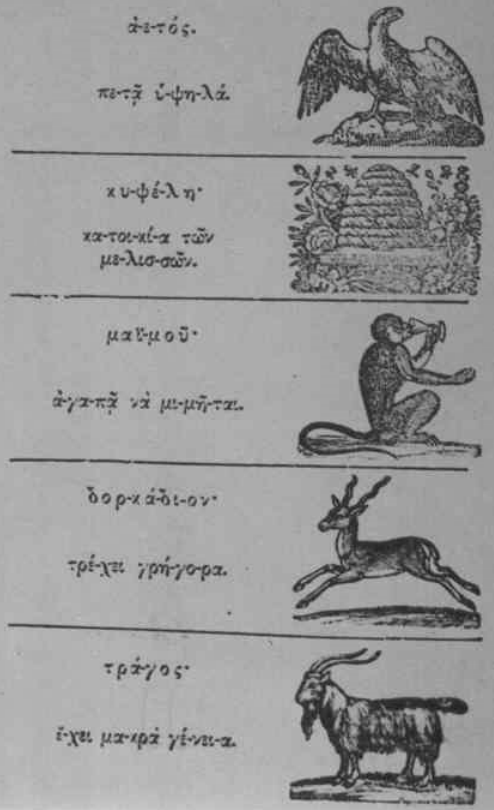 ἀ-ε-τός.
πε-τᾷ ὑ-ψη-λά.
κυ-ψέ-λη·
κα-τοι-κί-α τῶν
με-λισ-σῶν.
μαϊ-μοῦ·
ἀ-γα-πᾷ νὰ μι-μῆ-ται.
δορ-κά-δι-ον·
τρέ-χει γρή-γο-ρα.
τρά-γος·
ἔ-χει μα-κρὰ γέ-νει-α.